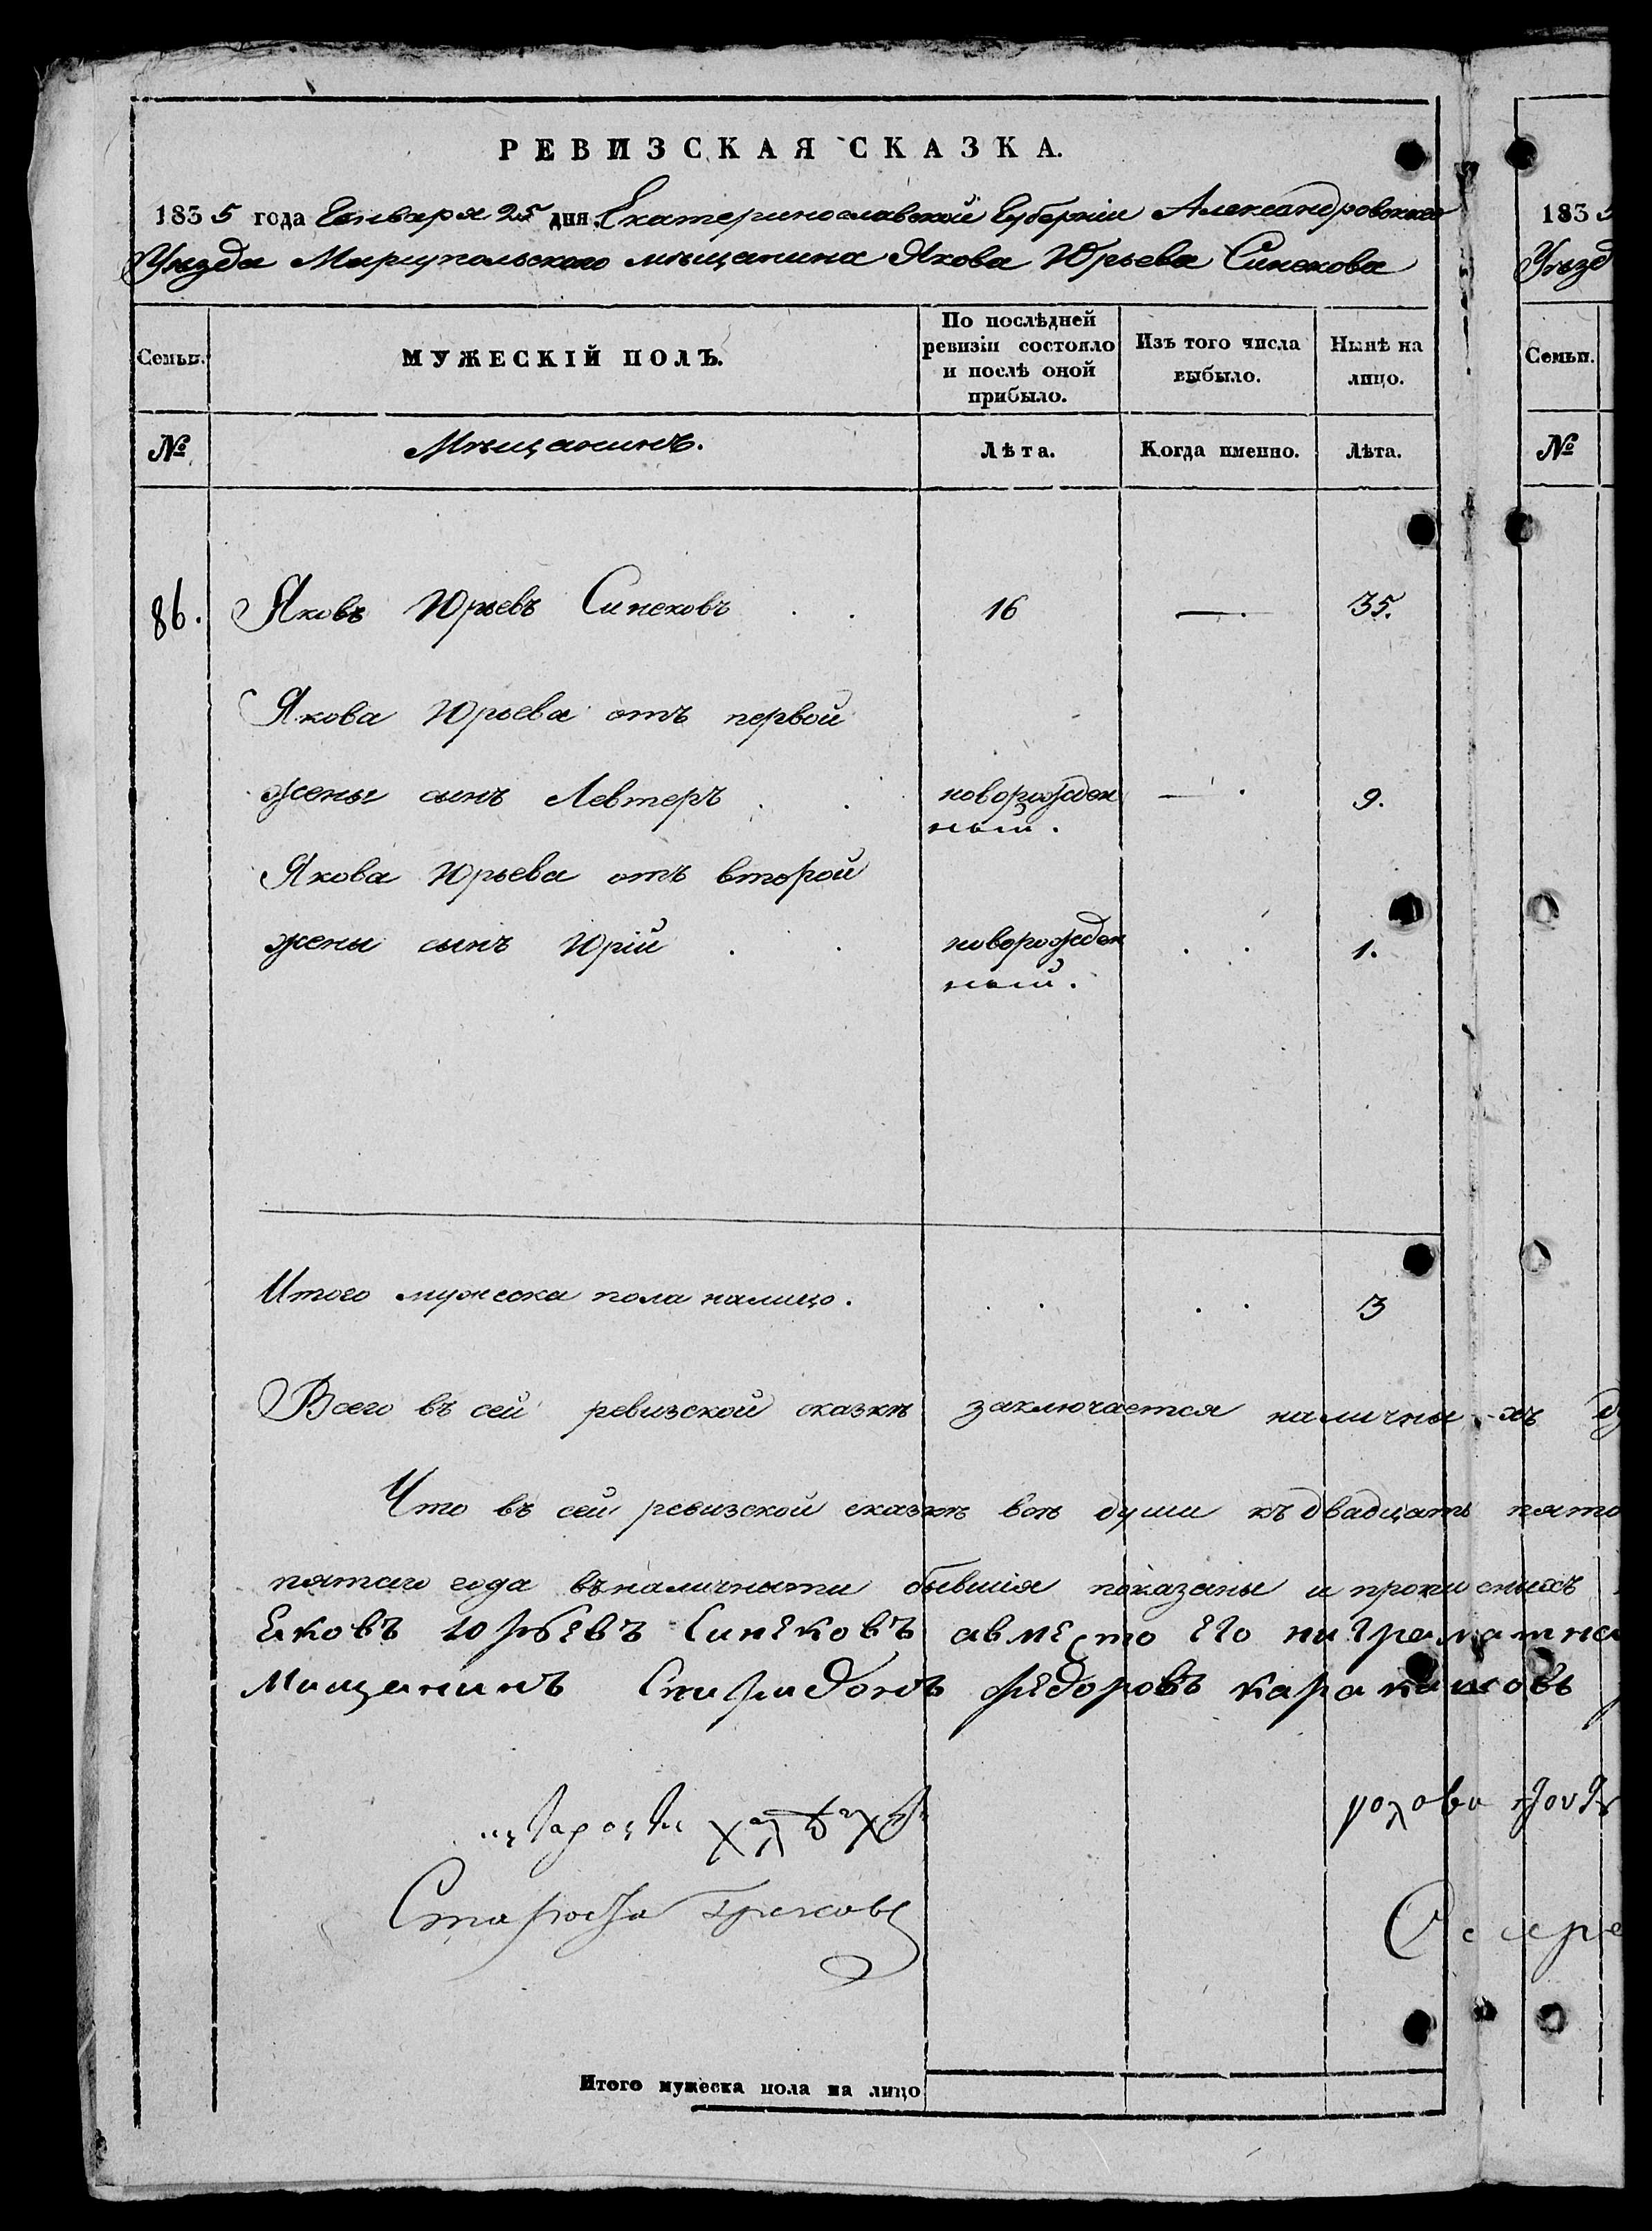 РЕВИЗСКАЯ СКАЗКА.
1835 года Генваря 25 дня. Екатеринославской Губерніи Александровскаго
Уѣзда Мариупольскаго мѣщанина Якова Юрьева Синекова
Семьи. МУЖЕСКІЙ ПОЛЪ. По послѣдней ревизіи состояло и послѣ оной прибыло. Изъ того числа выбыло. Нынѣ на лицо.
№ Мѣщанинъ. Лѣта. Когда именно. Лѣта.
86. Яковъ Юрьевъ Синековъ 16 — 35.
Якова Юрьева отъ первой
жены сынъ Левтеръ новорожден — 9.
ный.
Якова Юрьева отъ второй
жены сынъ Юрій новорожден 1.
ный.
Итого мужеска пола налицо. 3
Всего въ сей ревизской сказкѣ заключается наличныхъ
Что въ сей ревизской сказкѣ всѣ души къ двадцать пято
пятаго года въ наличности бывшія показаны и
Ековъ Юрьевъ Синековъ авместо его
Мищанинъ Спиридонъ Федоровъ
γολοβα
Староста Грековъ
Итого мужеска пола на лицо
183
Уѣзд
Семьи.
№